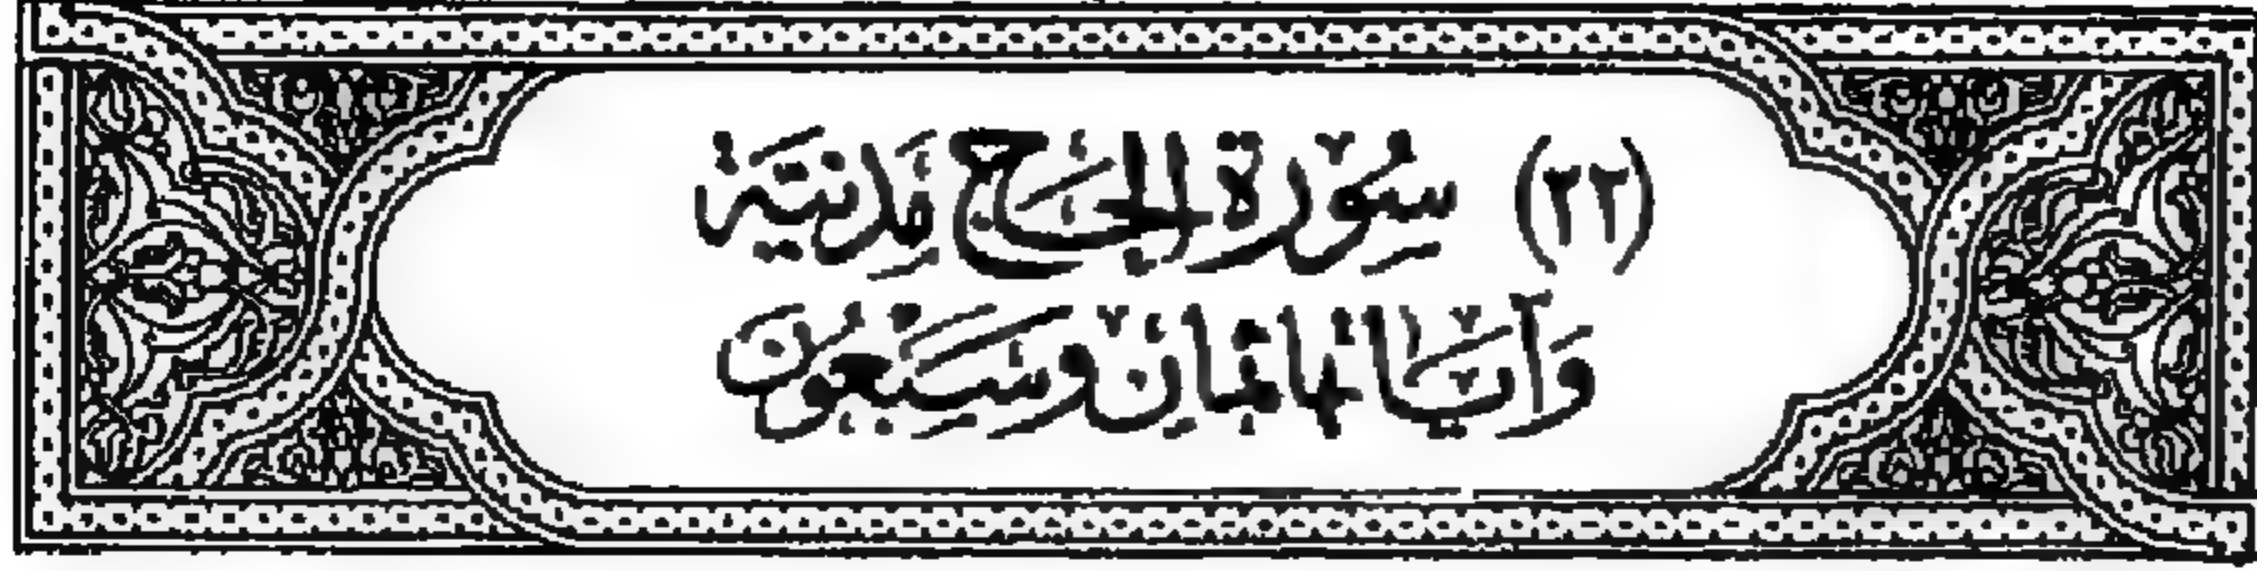 (٢٢) سُوْرَةِ الحَجِّ مَدَنِيَّةٌ
وَآيَاتُهَا ثَمَانٍ وَسَبْعُوْنَ